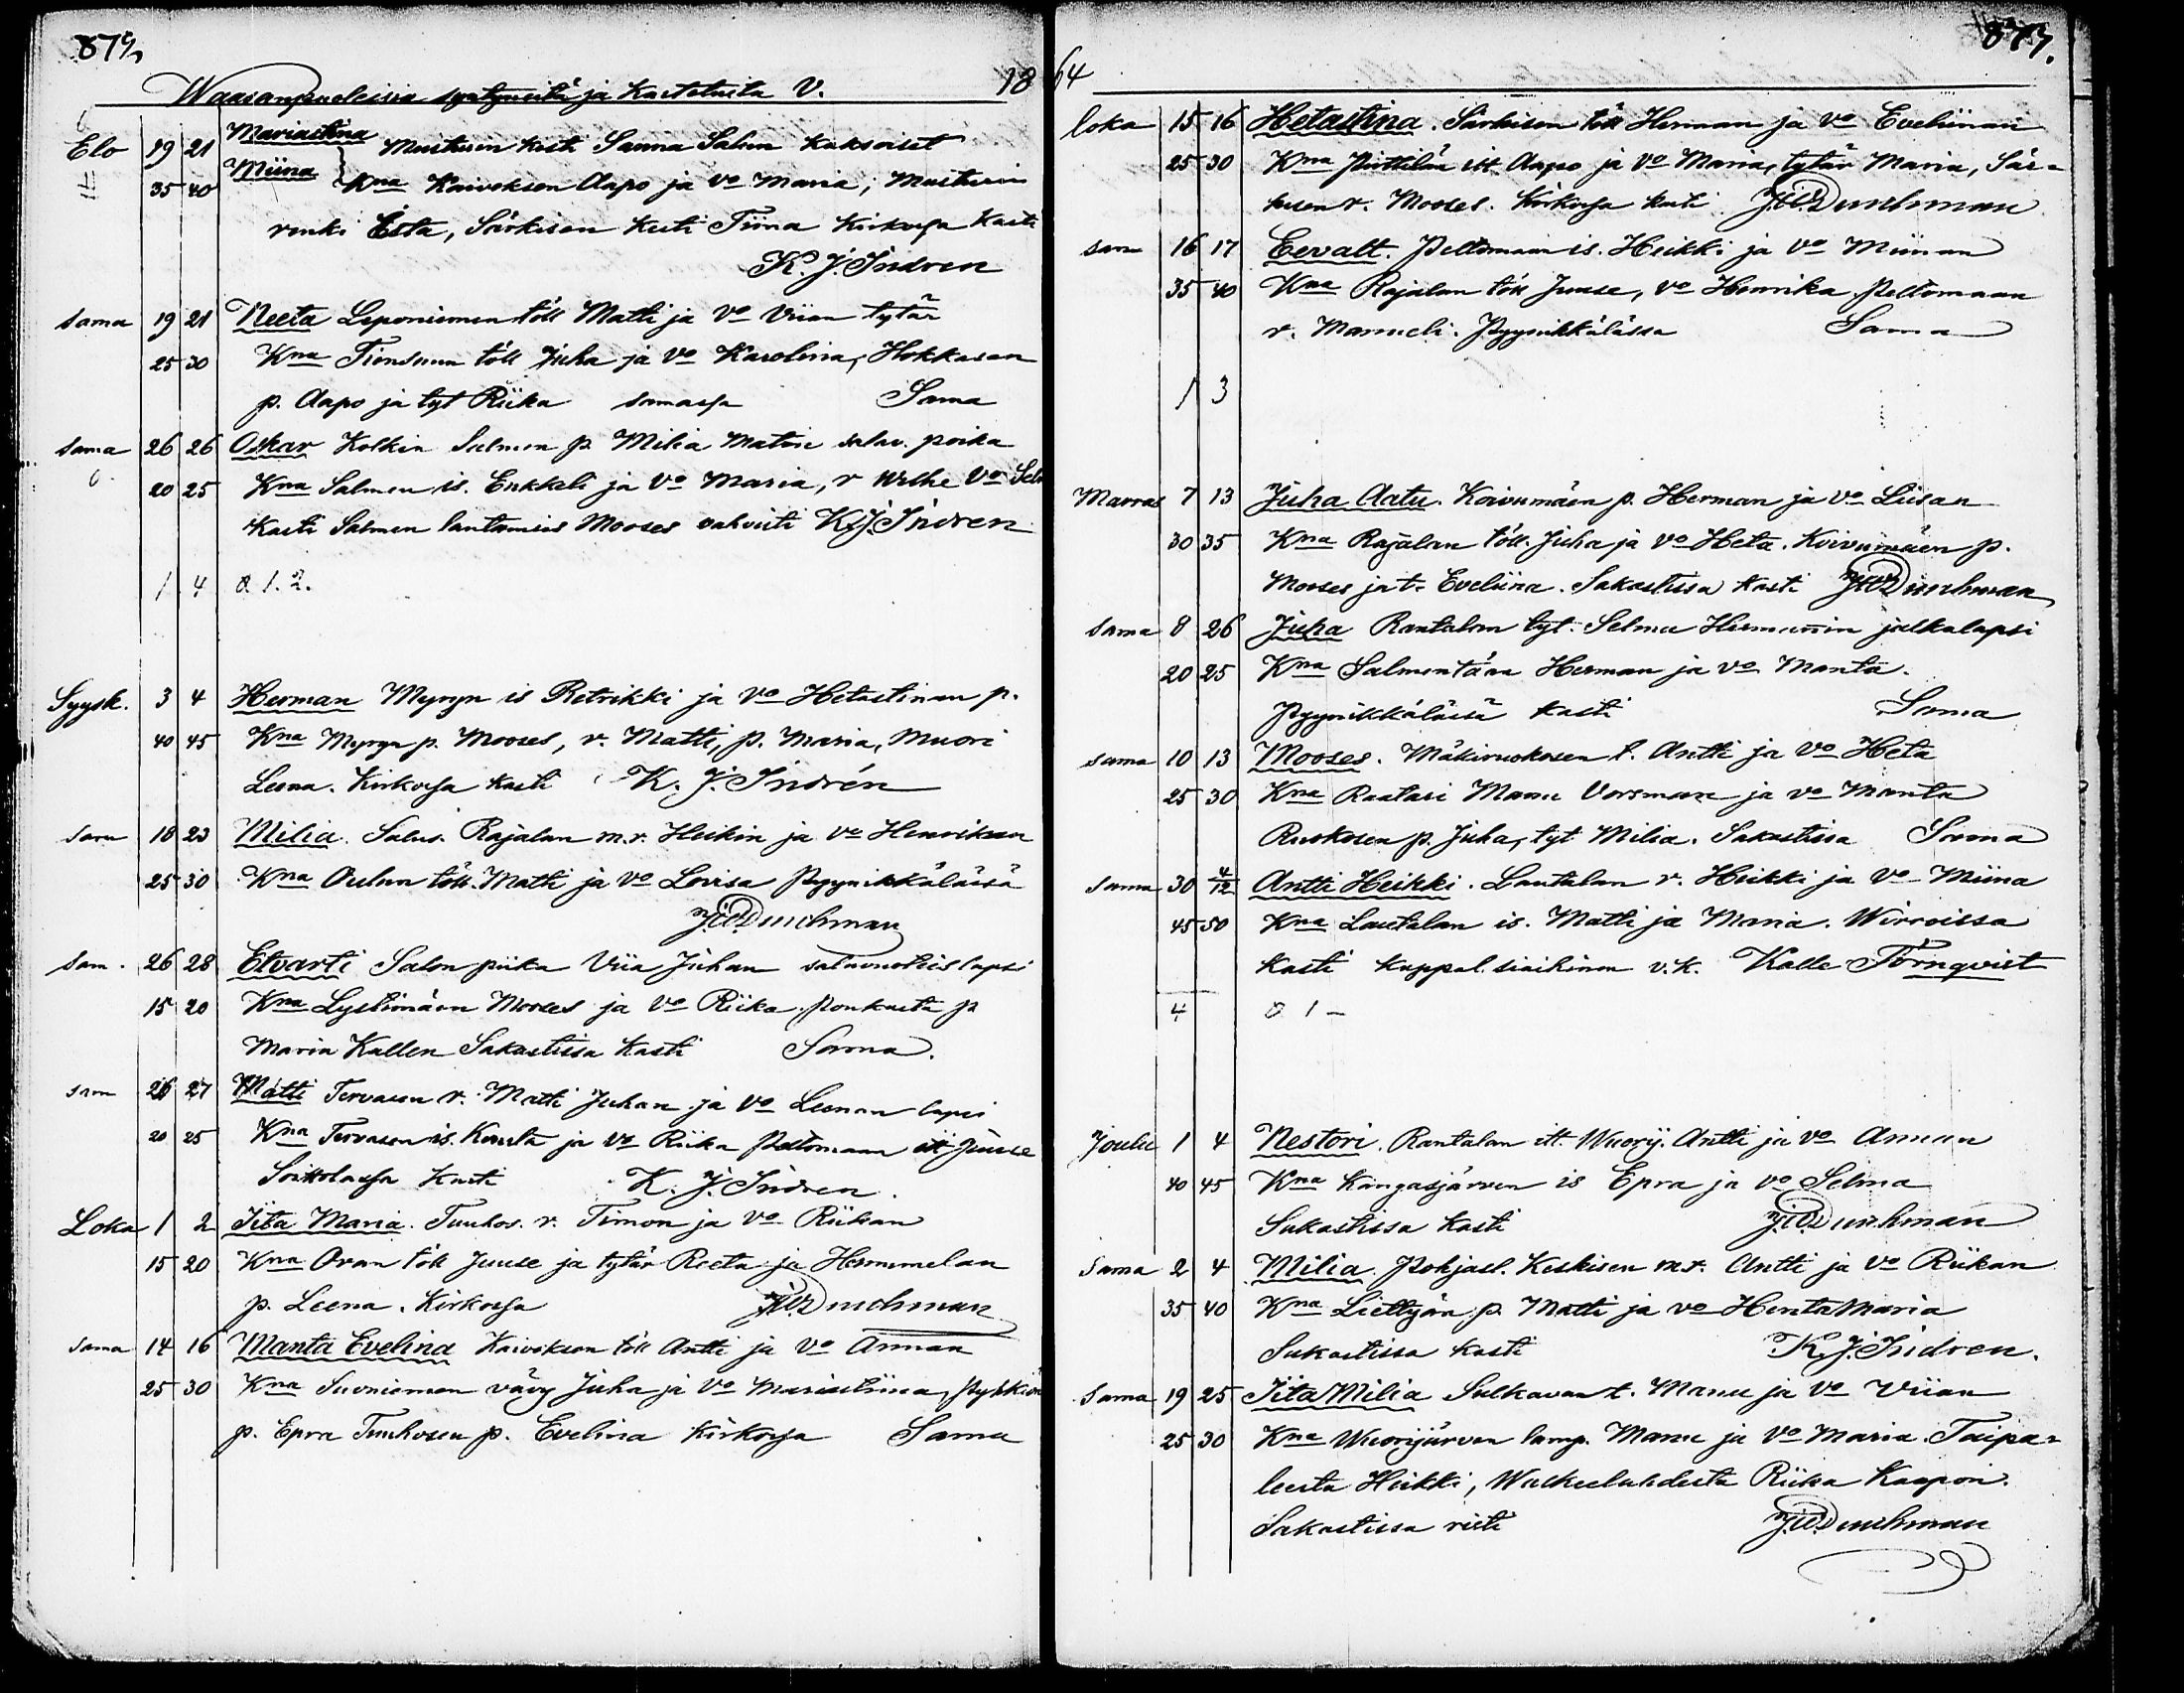 Waasanpuoleisia syntyneitä ja Kastetuita V. 18
Elo 19 21 Mariastina Mustusen kest. Sanna Salun kaksoiset
35 40 Miina Kna Kaivoksen Aapo ja Vo Maria; Mustusen
renki Esta, Särkisen kesti Tiina Kirkossa kasti
K. J. Indren
Sama 19 21 Neeta Leponiemen töll Matti ja Vo Viian tytär
25 30 Kna Tiensuun töll Juha ja Vo Karolina, Hokkasen
p. Aapo ja tyt Riika samassa Sama
Sama 26 26 Oskar Kolkin Salmen p. Milia Matin salav. poika
20 25 Kna Salmen is. Erkkeli ja Vo Maria, r Wilhe Vo
Kasti Salmen lautamies Mooses vahvisti K.J. Indren
1 4 a 1. 2.
Syysk. 3 4 Herman Myryn is Retrikki ja Vo Hetastinan p.
40 45 Kna Myryn p. Mooses, r. Matti, p. Maria, Muori
Leena. Kirkossa kasti K. J. Indrén
Sam 18 23 Milia. Salus. Rajalan m.r. Heikin ja Vo Henrikan
25 30 Kna Oulun töll. Matti ja Vo Lovisa Pyynikkälässä
J.W. Durchman
Sam. 26 28 Etvarti Salon piika Viia Juhan salavuoteislapsi
15 20 Kna Lystimäen Mooses ja Vo Riika. p
Maria Kallen Sakastissa kasti Sama.
Sam 26 27 Matti Tervasen r. Matti Juhan ja Vo Leenan lapsi
20 25 Kna Tervasen is. Kusta ja Vo Riika Peltomaan it Juuse
Soikolassa kasti K. J. Indren.
Loka 1 2 Iita Maria. Tuuhos. r. Timon ja Vo Riikan
15 20 Kna Oran töll Juuse ja tytär Reeta ja Hermmelan
p. Leena. Kirkossa J.W. Durchman
Sama 14 16 Manta Evelina Kaivoksen töll Antti ja Vo Annan
25 30 Kna Suoniemen vävy Juha ja Vo Mariastiina,
p. Epra Tuuhosen p. Evelina Kirkossa Sama
877.
64
loka 15 16 Hetastina. Särkisen töll Herman ja Vo Eveliinan
25 30 Kna Pirttilän itt. Aapo ja Vo Maria, tytär Maria, Sär=
kisen r. Mooses. Kirkossa kasti J.W. Durchman
sam 16 17 Eevalt. Peltomaan is. Heikki ja Vo Miinan
35 40 Kna Rajalan töll Juuse, Vo Henrika Peltomaan
r. Manueli. Pyynikkälässä Sama
1 3
Marras 7 13 Juha Aatu. Koivumäen p. Herman ja Vo Liisan
30 35 Kna Rajalan töll. Juha ja Vo Heta. Koivumäen p.
Mooses ja t. Eveliina. Sakastissa kasti J.W. Durchman
Sama 8 26 Juha Rantalan tyt. Selma Hermannin jalkalapsi
20 25 Kna Salmentään Herman ja Vo Manta.
Pyynikkälässä kasti Sama
sama 10 13 Mooses. Mäkiruokosen t. Antti ja Vo Heta
25 30 Kna Raatari Manu Vorsman ja Vo Manta
Ruokosen p. Juha, tyt Milia. Sakastissa Sama
Sama 30 4/12 Antti Heikki. Lautalan r. Heikki ja Vo Miina
45 50 Kna Lautalan is. Matti ja Maria. Wirroissa
kasti kappal. siaihinen v.k. Kalle Törnqvist
4 a 1 –
Joulu 1 4 Nestori. Rantalan itt. Wuorij. Antti ja Vo Annan
40 45 Kna Kangasjärven is Epra ja Vo Selma
Sakastissa kasti J.W. Durchman
Sama 2 4 Milia. Pohjasl. Keskisen m.r. Antti ja Vo Riikan
35 40 Kna Liettyän p. Matti ja Vo Henta Maria
Sakastissa kasti K. J. Indren.
Sama 19 25 Iita Milia Sulkavan t. Manu ja Vo Viian
25 30 Kna Wuorijärven lamp. Manu ja Vo Maria. Taipa=
leesta Heikki, Walkeelahdesta Riika Kaapon.
Sakastissa risti J.W. Durchman